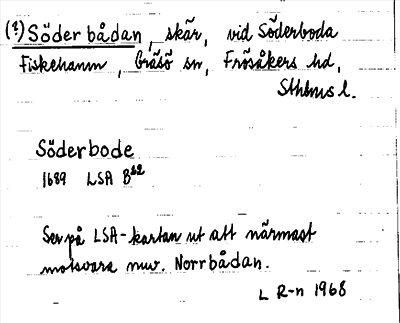 (?) Söderbådan, skär, vid Söderboda
Fiskehamn, Gräsö sn, Frösåkers hd,
Sthlms l.
Söderbode
1689 LSA B22
Ser på LSA-kartan ut att närmast
motsvara nuv. Norrbådan.
L R-n 1968